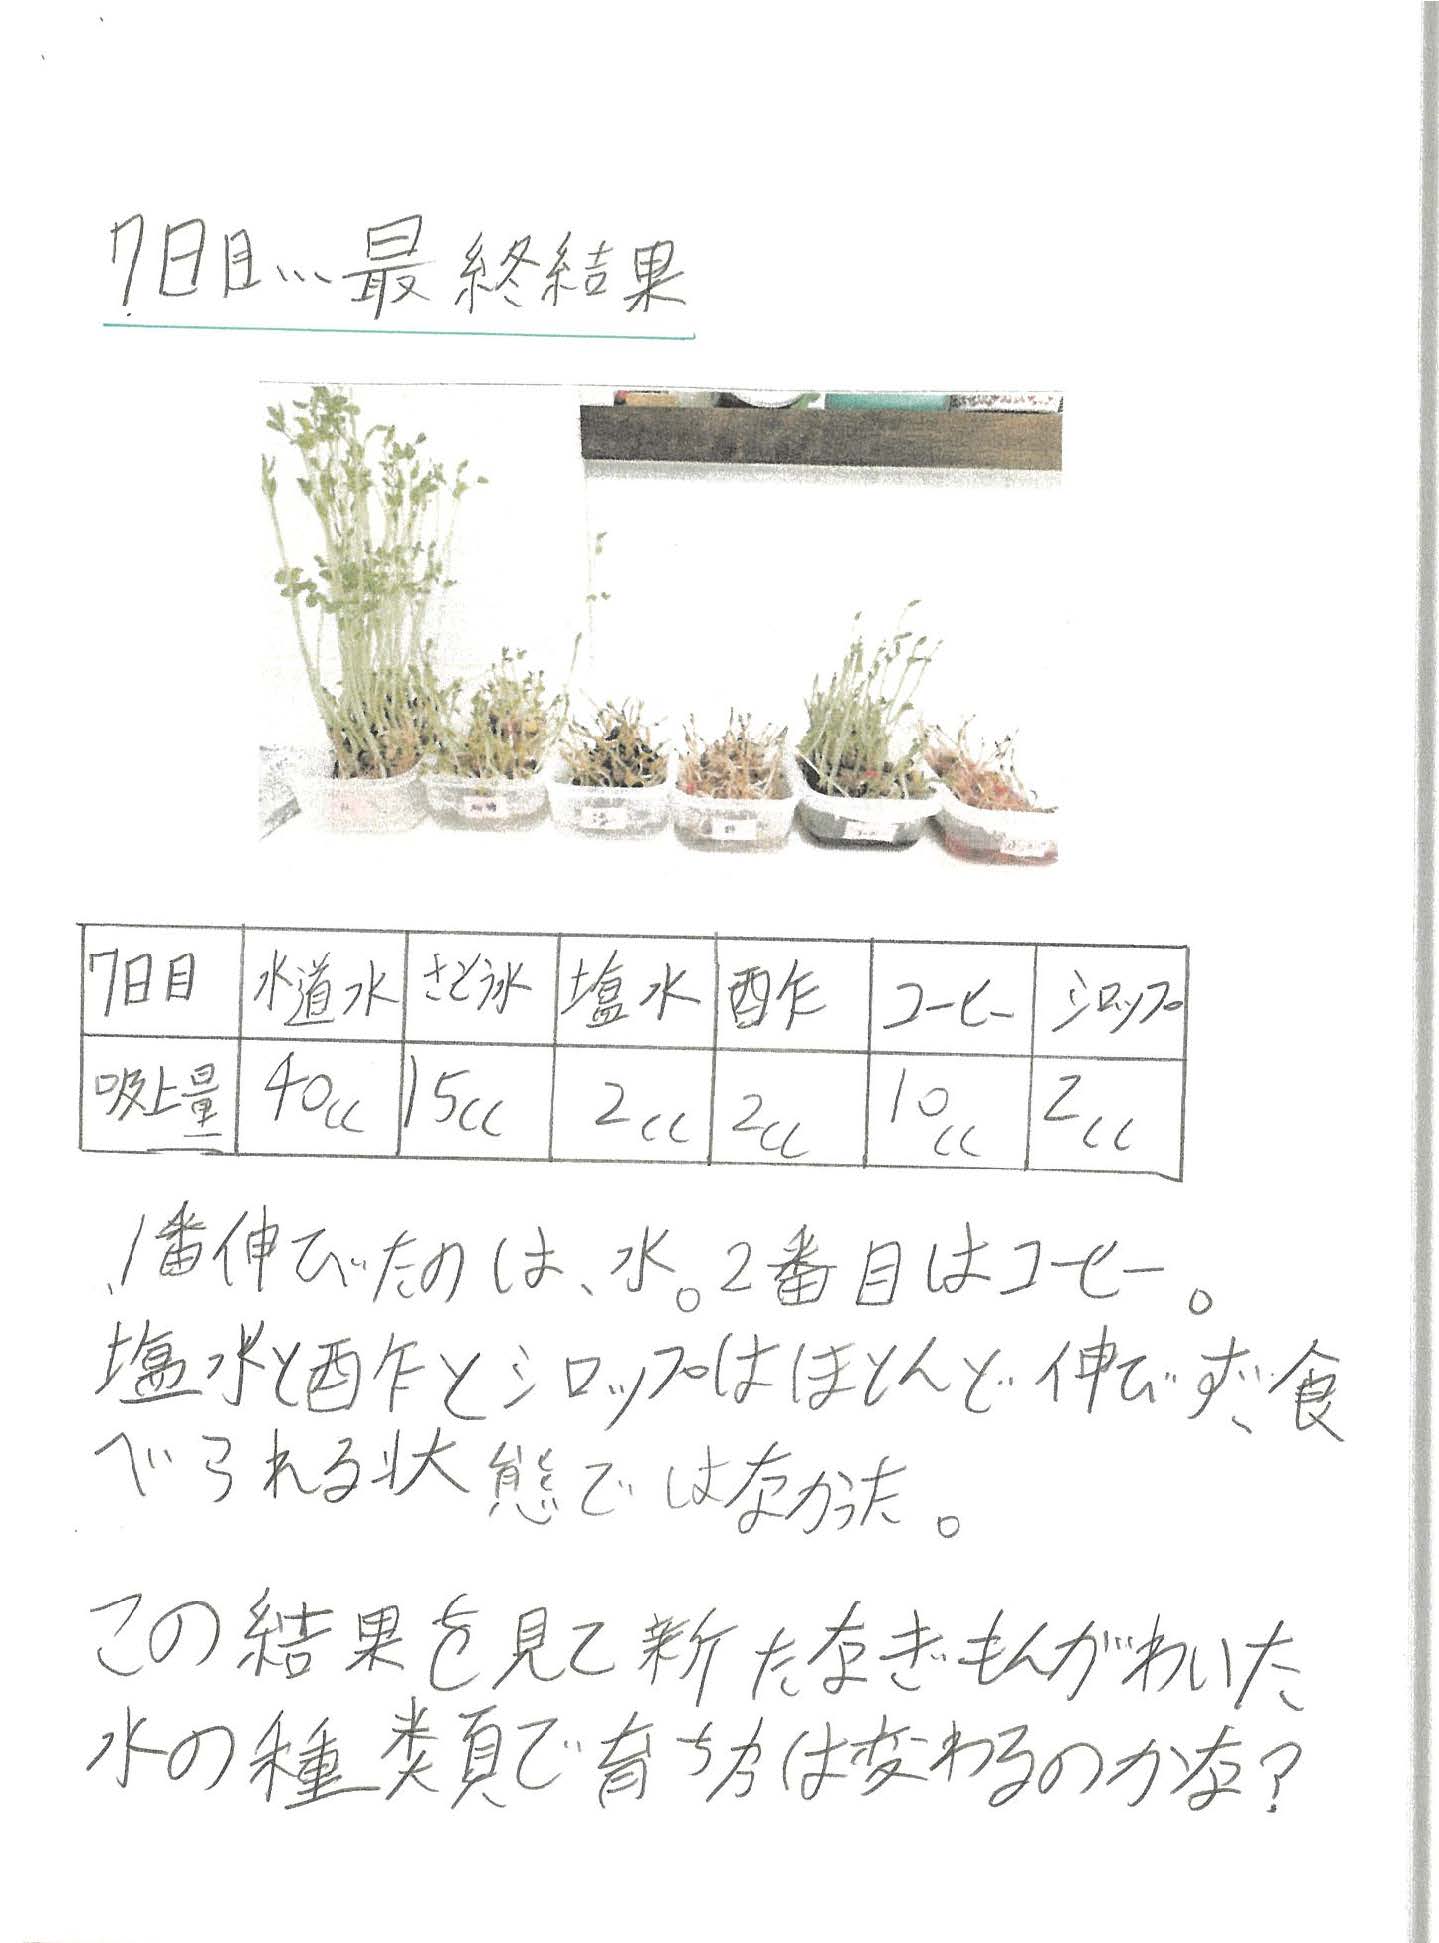 7日目…最終結果
7日目 水道水 さとう水 塩水 酢 コーヒー シロップ
吸上量 40cc 15cc 2cc 2cc 10cc 2cc
1番伸びたのは、水。2番目はコーヒー。
塩水と酢とシロップはほとんど伸びず、食
べられる状態ではなかった。
この結果を見て新たなぎもんがわいた
水の種類で育ち方は変わるのかな?